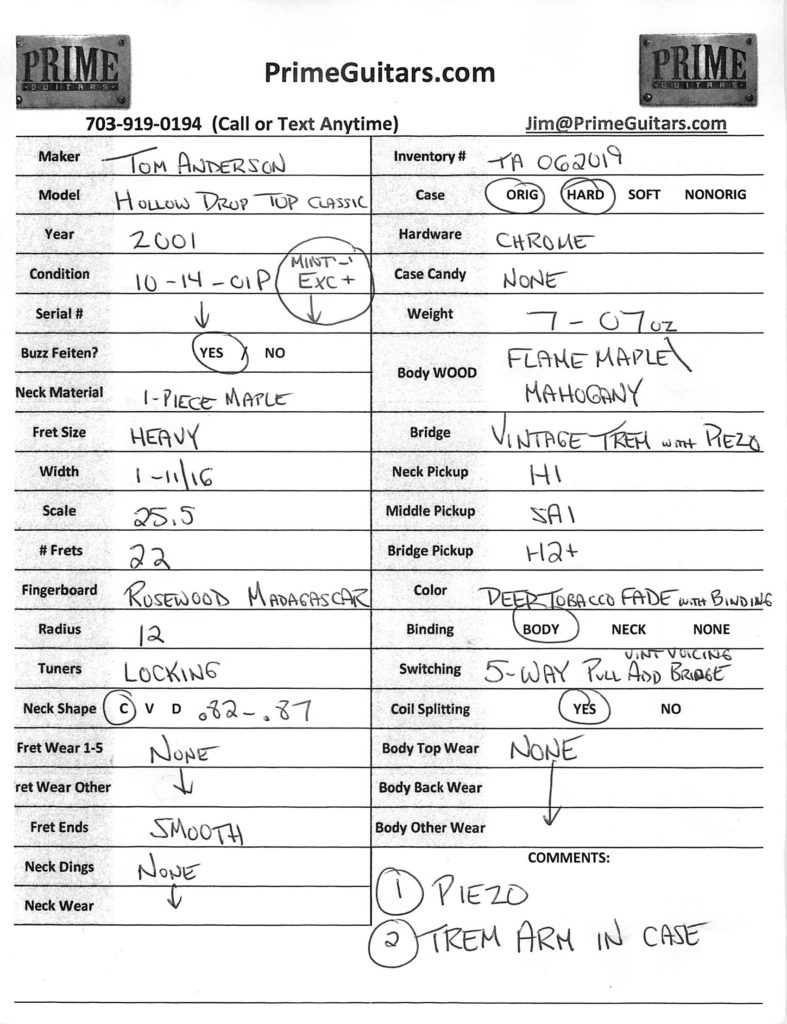 PRIME
GUITARS
PrimeGuitars.com
PRIME
GUITARS
703-919-0194 (Call or Text Anytime)
Jim@PrimeGuitars.com
Maker TOM ANDERSON
Model HOLLOW DROP TOP CLASSIC
Year 2001
Condition 10-14-01P MINT- EXC+
Serial #
Buzz Feiten? YES / NO
Neck Material 1-PIECE MAPLE
Fret Size HEAVY
Width 1-11/16
Scale 25.5
# Frets 22
Fingerboard ROSEWOOD MADAGASCAR
Radius 12
Tuners LOCKING
Neck Shape C V D .82-.87
Fret Wear 1-5 NONE
ret Wear Other
Fret Ends SMOOTH
Neck Dings NONE
Neck Wear
Inventory # TA 062019
Case ORIG HARD SOFT NONORIG
Hardware CHROME
Case Candy NONE
Weight 7-07oz
Body WOOD FLAME MAPLE\
MAHOGANY
Bridge VINTAGE TREM WITH PIEZO
Neck Pickup H1
Middle Pickup SA1
Bridge Pickup H2+
Color DEEP TOBACCO FADE WITH BINDING
Binding BODY NECK NONE
VINT VOICING
Switching 5-WAY PULL ADD BRIDGE
Coil Splitting YES NO
Body Top Wear NONE
Body Back Wear
Body Other Wear
COMMENTS:
1 PIEZO
2 TREM ARM IN CASE